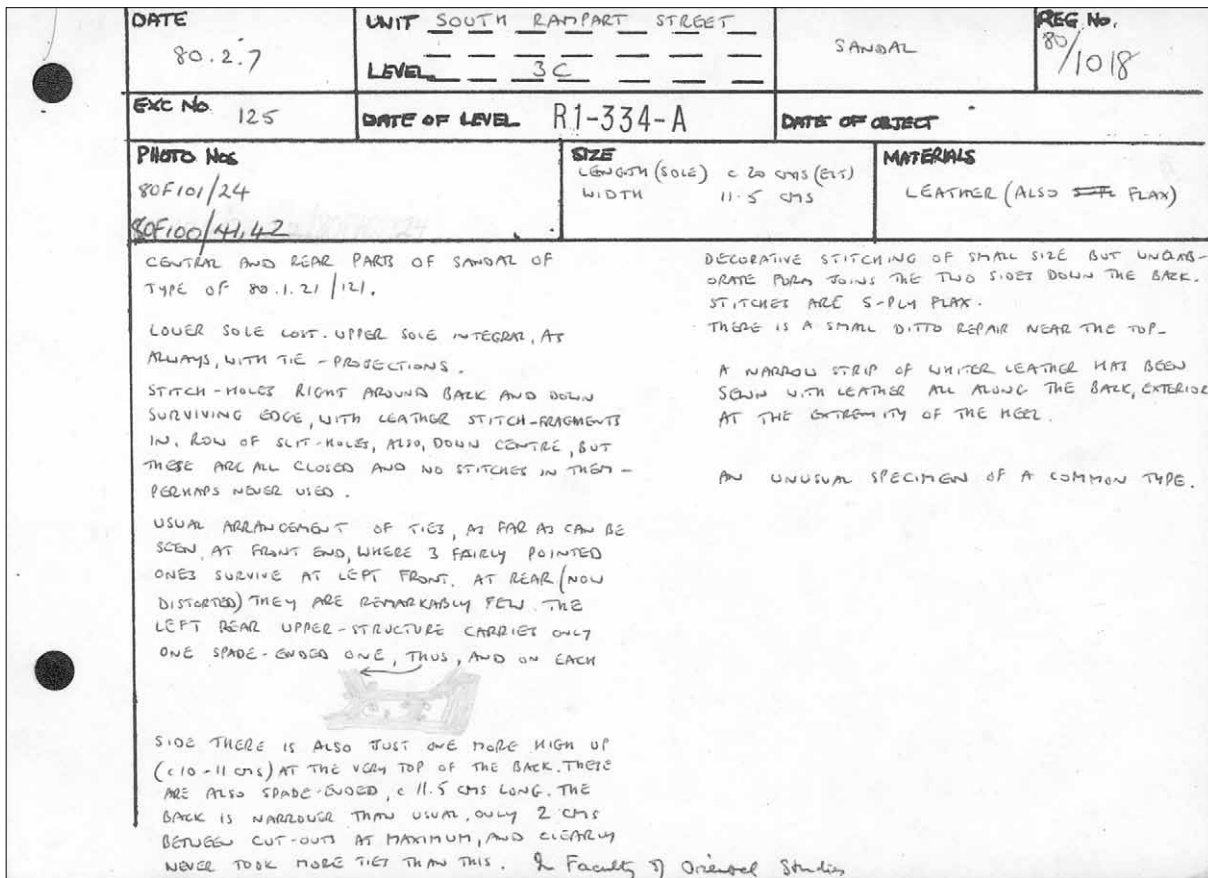 DATE
80.2.7
UNIT SOUTH RAMPART STREET
LEVEL 3C
SANDAL
REG No.
80/1018
EXC No. 125
DATE OF LEVEL R1-334-A
DATE OF OBJECT
PHOTO Nos
80F101/24
80F100/41,42
SIZE
LENGTH (SOLE) c 20 CMS (EST)
WIDTH 11.5 CMS
MATERIALS
LEATHER (ALSO FLAX)
CENTRAL AND REAR PARTS OF SANDAL OF
TYPE OF 80.1.21/121.
LOWER SOLE LOST. UPPER SOLE INTEGRAL, AS
ALWAYS, WITH TIE-PROJECTIONS.
STITCH-HOLES RIGHT AROUND BACK AND DOWN
SURVIVING EDGE, WITH LEATHER STITCH-FRAGMENTS
IN. ROW OF SLIT-HOLES, ALSO, DOWN CENTRE, BUT
THESE ARE ALL CLOSED AND NO STITCHES IN THEM -
PERHAPS NEVER USED.
USUAL ARRANGEMENT OF TIES, AS FAR AS CAN BE
SEEN, AT FRONT END, WHERE 3 FAIRLY POINTED
ONES SURVIVE AT LEFT FRONT. AT REAR (NOW
DISTORTED) THEY ARE REMARKABLY FEW. THE
LEFT REAR UPPER-STRUCTURE CARRIES ONLY
ONE SPADE-ENDED ONE, THUS, AND ON EACH
SIDE THERE IS ALSO JUST ONE MORE HIGH UP
(c 10-11 CMS) AT THE VERY TOP OF THE BACK. THESE
ARE ALSO SPADE-ENDED, c 11.5 CMS LONG. THE
BACK IS NARROWER THAN USUAL, ONLY 2 CMS
BETWEEN CUT-OUTS AT MAXIMUM, AND CLEARLY
NEVER TOOK MORE TIES THAN THIS. In Faculty of Oriental Studies
DECORATIVE STITCHING OF SMALL SIZE BUT UNELAB-
ORATE FORM JOINS THE TWO SIDES DOWN THE BACK.
STITCHES ARE S-PLY FLAX.
THERE IS A SMALL DITTO REPAIR NEAR THE TOP.
A NARROW STRIP OF WHITER LEATHER HAS BEEN
SEWN WITH LEATHER ALL ALONG THE BACK, EXTERIOR
AT THE EXTREMITY OF THE HEEL.
AN UNUSUAL SPECIMEN OF A COMMON TYPE.